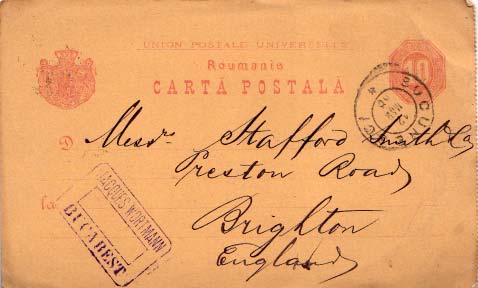 UNION POSTALE UNIVERSELLE
Roumanie
CARTĂ POSTALĂ
10
BUCURESCI
D Messrs. Stafford Smith & Co
Preston Road
la
Brighton
England
JACQUES WORTMANN
BUCAREST